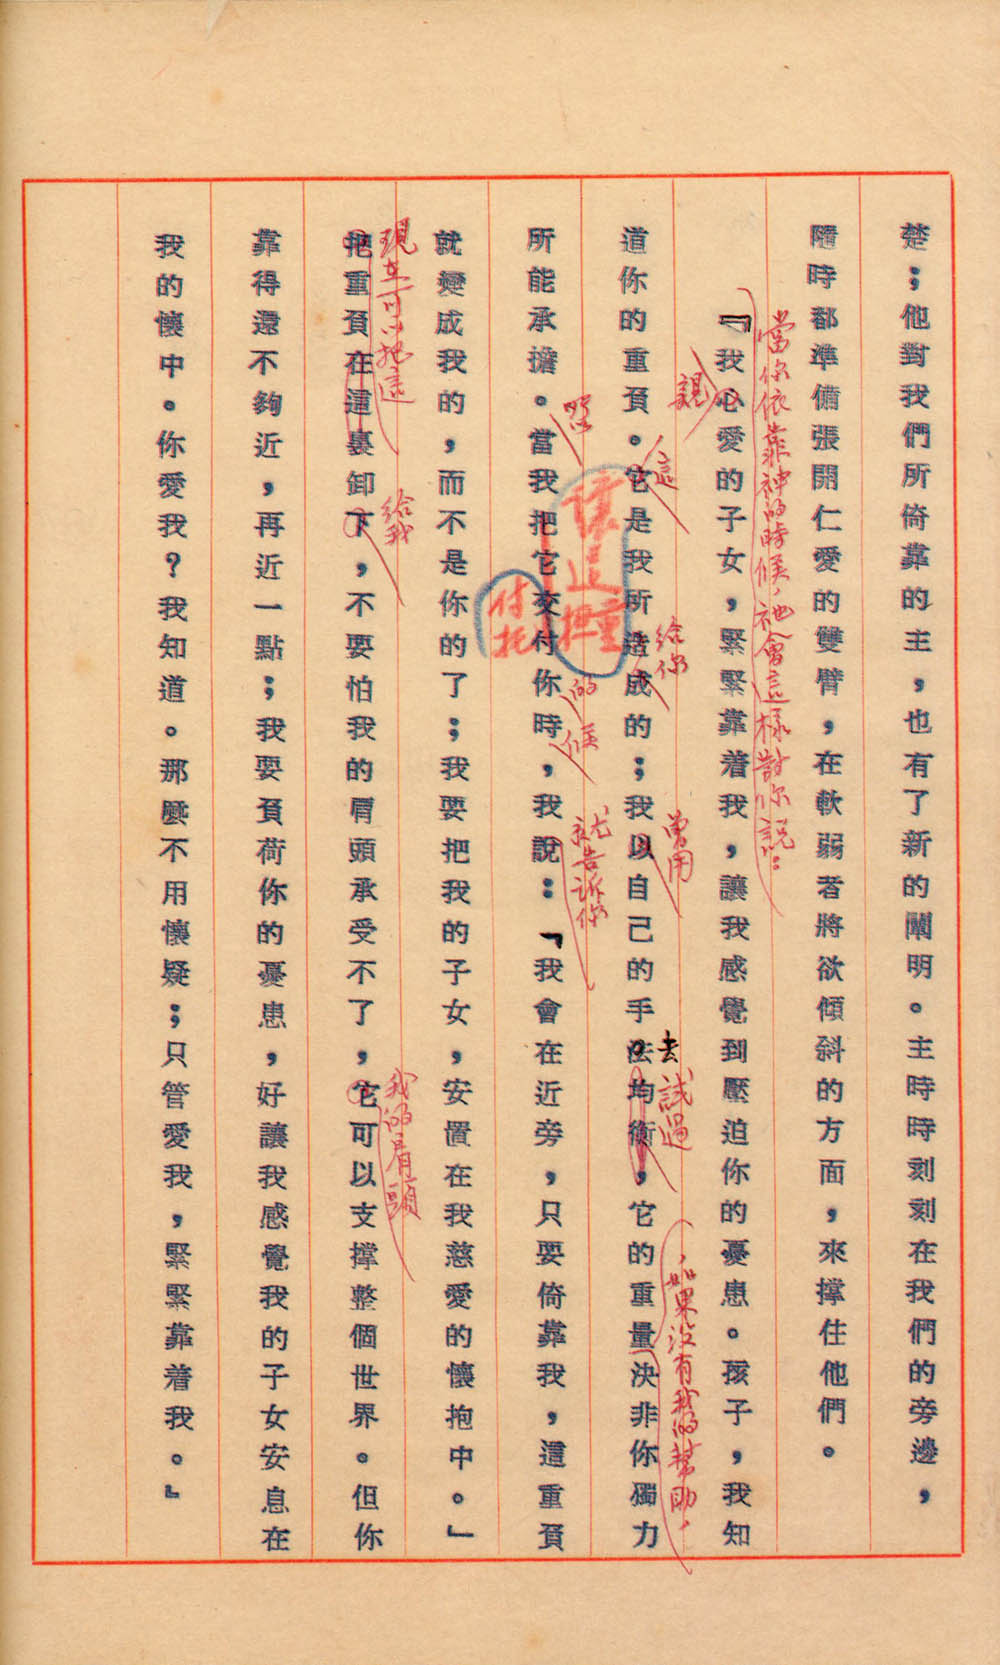 楚；他對我們所倚靠的主，也有了新的闡明。主時時刻刻在我們的旁邊，
隨時都準備張開仁愛的雙臂，在軟弱者將欲傾斜的方面，來撐住他們。
當你依靠神的時候，祂會這樣對你說：
『我心愛的子女，緊緊靠着我，讓我感覺到壓迫你的憂患。孩子，我知
親
道你的重負。它是我所造成的；我以自己的手法均衡，它的重量決非你獨力
這
給你
曾用
去
試過
，如果沒有我的幫助，
所能承擔。當我把它交付你時，我說：「我會在近旁，只要倚靠我，這重負
讓這重擔
付托
的
候
就告訴你
就變成我的，而不是你的了；我要把我的子女，安置在我慈愛的懷抱中。」
把重負在這裏卸下，不要怕我的肩頭承受不了，它可以支撐整個世界。但你
現在可以把這
給我
我的肩頭
靠得還不夠近，再近一點；我要負荷你的憂患，好讓我感覺我的子女安息在
我的懷中。你愛我？我知道。那麼不用懷疑；只管愛我，緊緊靠着我。』